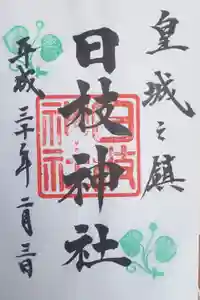 皇城之鎮
日枝神社
平成三十年二月三日
日枝神社